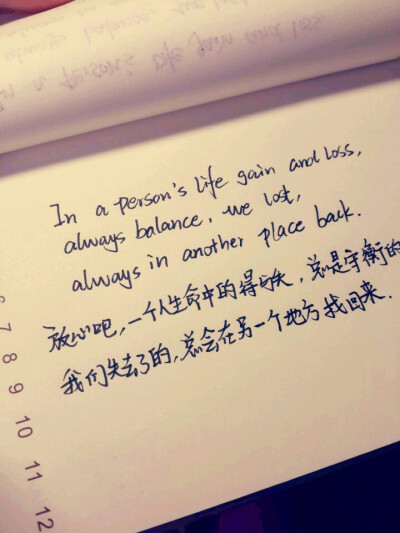 In a person's life gain and loss,
always balance, we lost,
always in another place back.
放心吧,一个人生命中的得与失,总是守衡的
我们失去了的,总会在另一个地方找回来.
7
8
9
10
11
12